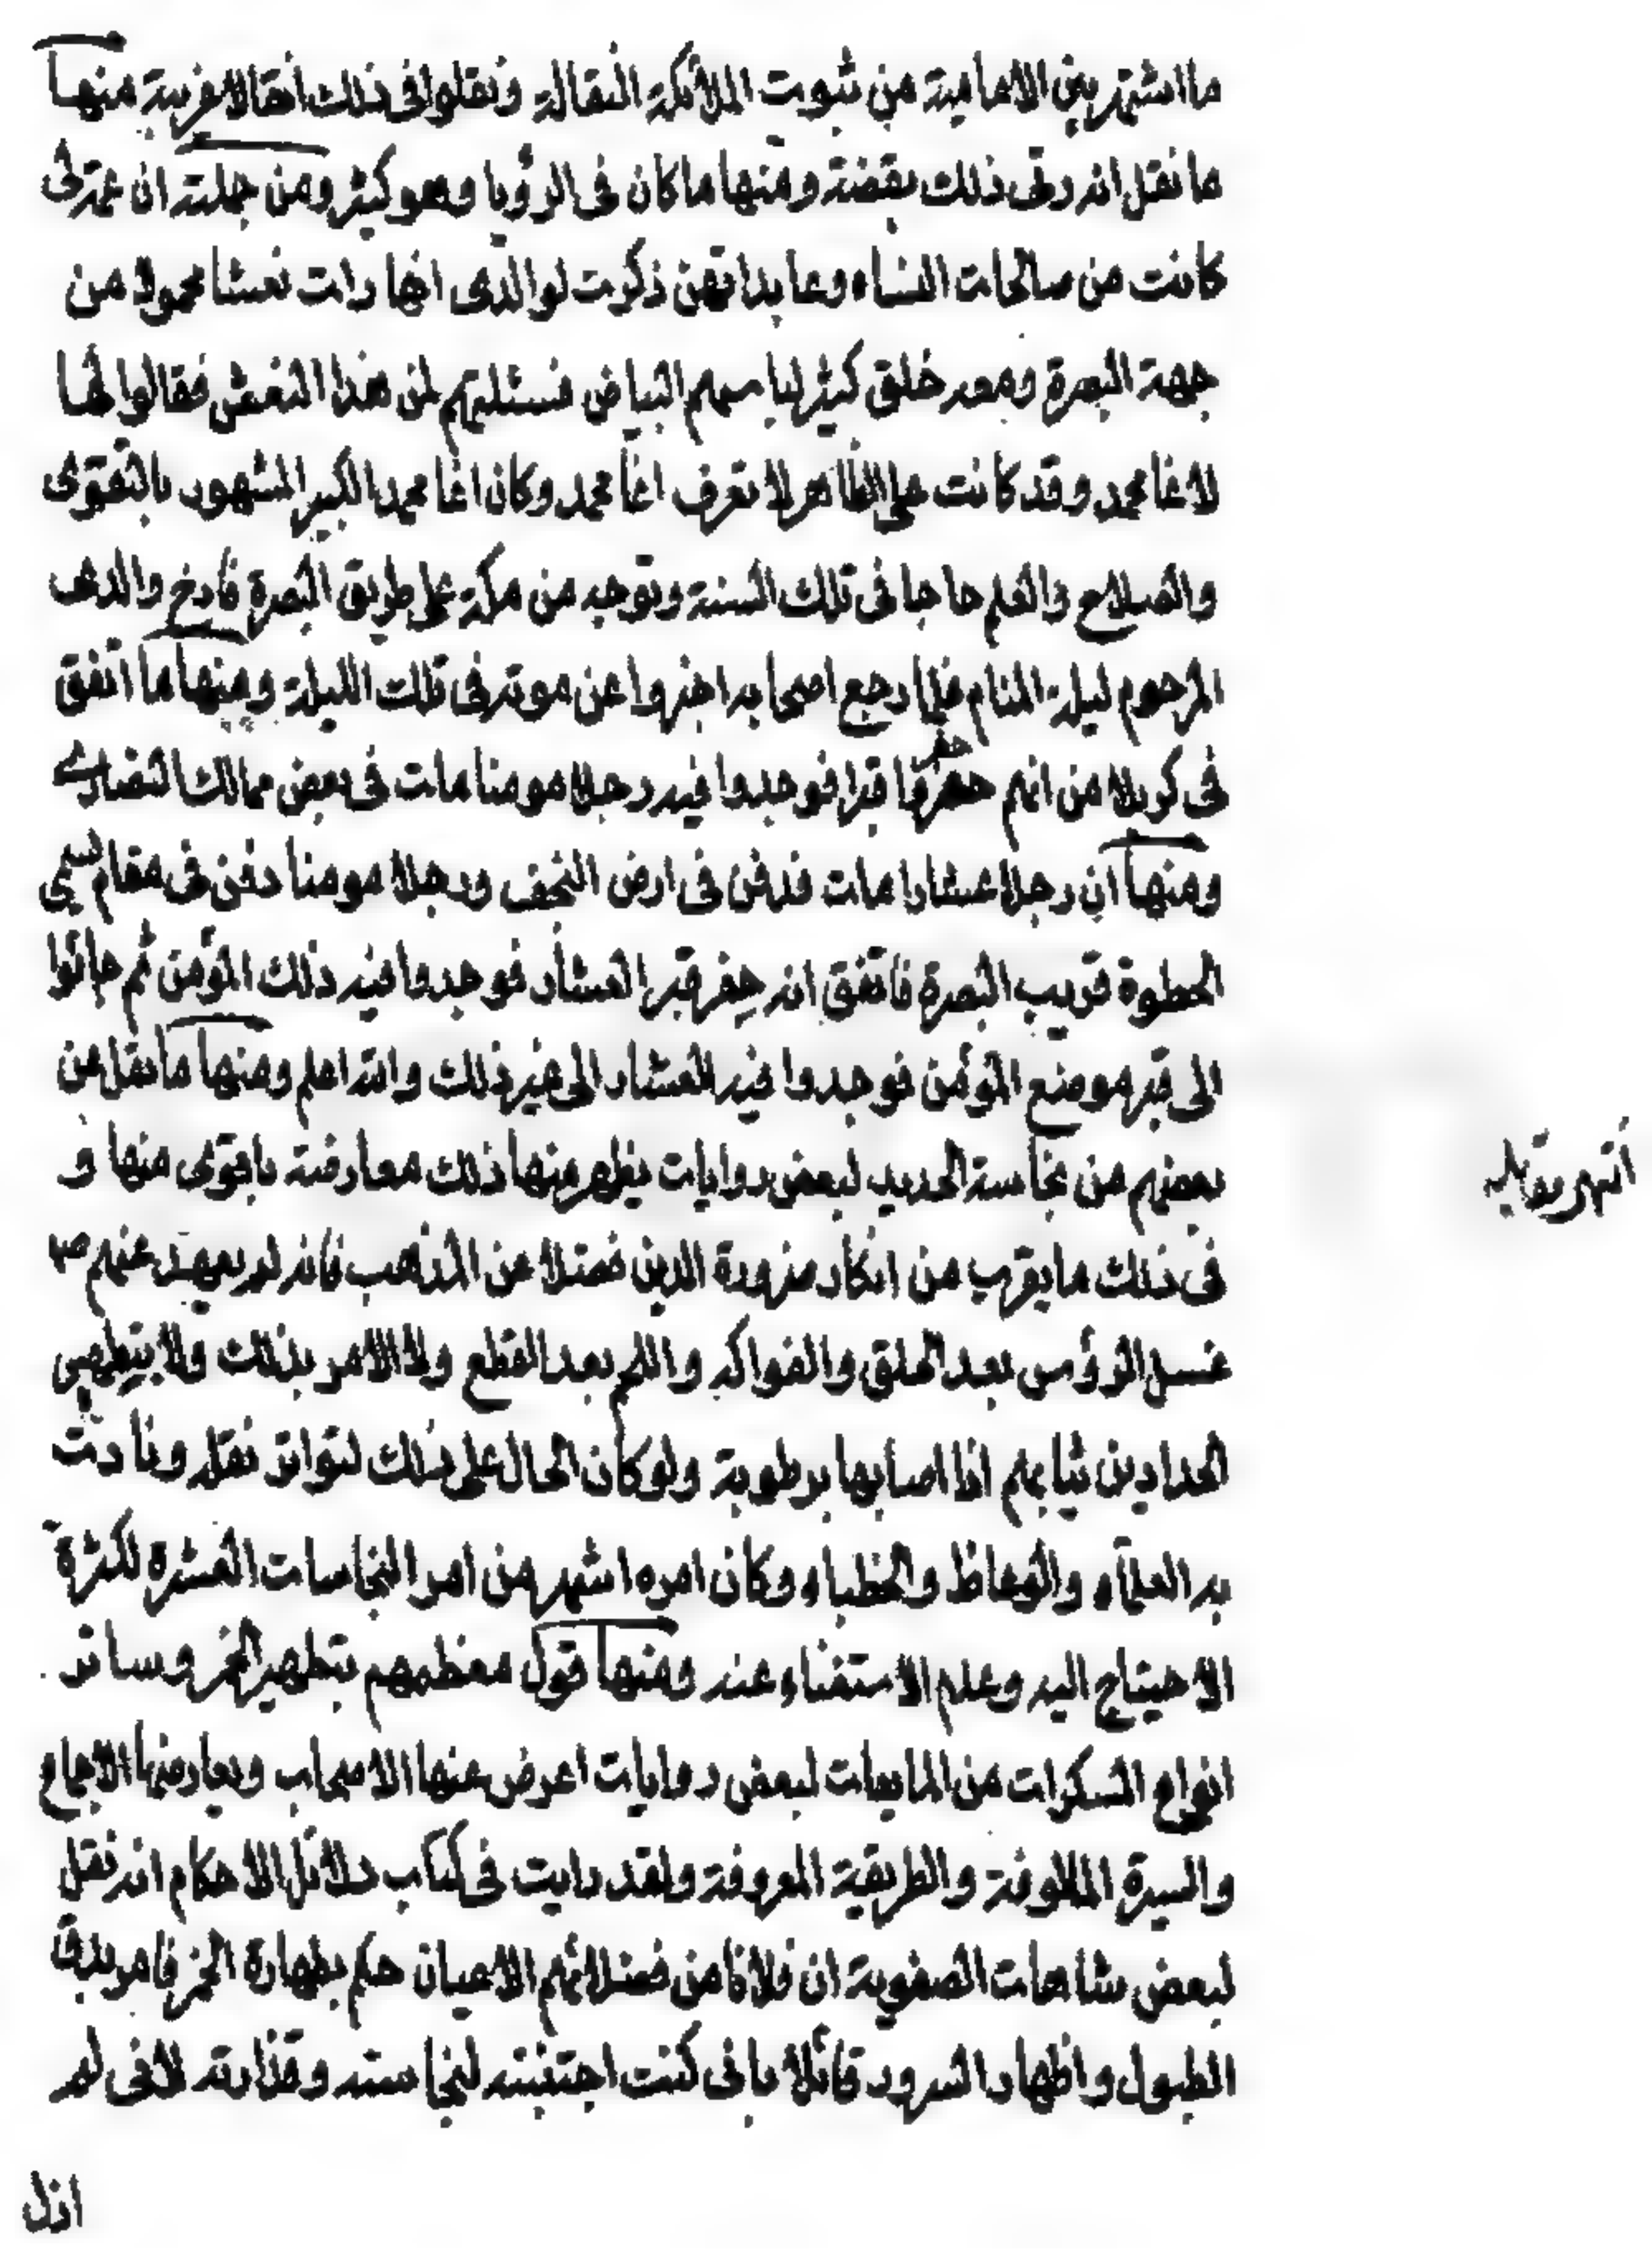 ما اشتهر بين الامامية من ثبوت الملائكة النقالة ونقلوا فى ذلك انقالا غريبة منها
ما نقل انه رئى ذلك يقضة ومنها ما كان فى الرؤيا وهو كثير ومن جملته ان عمتى
كانت من صالحات النساء وعابداتهن ذكرت لوالدى انها رات نعشا محمولا من
جهة البصرة ومعه خلق كثير لباسهم البياض فسئلتهم لمن هذا النعش فقالوا لها
لاغا محمد وقد كانت على الظاهر لا تعرف اغا محمد وكان اغا محمد الكبير المشهور بالتقوى
والصلاح والعلم حاجا فى تلك السنة وتوجه من مكة على طريق البصرة فارخ والدى
المرحوم ليلة المنام فلما رجع اصحابه اخبروا عن موته فى تلك الليلة ومنها ما اتفق
فى كربلا من انهم حفروا قبرا فوجدوا فيه رجلا مومنا مات فى بعض ممالك النصارى
ومنها ان رجلا عشارا مات فدفن فى ارض النجف ورجلا مومنا دفن فى مقام يسمى
الخطوة قريب البصرة فاتفق انه حفر قبر العشار فوجدوا فيه ذلك المؤمن ثم جائوا
الى قبر موضع المؤمن فوجدوا فيه العشار الى غير ذلك والله اعلم ومنها ما نقل عن
بعضهم من نجاسة الحديد لبعض روايات يظهر منها ذلك معارضة باقوى منها و
فى ذلك ما يقرب من انكار ضرورة الدين فضلا عن المذهب فانه لم يعهد عنهم ص
غسل الرؤس بعد الحلق والفواكه واللحم بعد القطع ولا الامر بذلك ولا بتطهير
الحدادين ثيابهم اذا اصابها برطوبة ولو كان الحال على ذلك لتواتر نقله ونادت
به العلماء والوعاظ والخطباء وكان امره اشهر من امر النجاسات العشرة لكثرة
الاحتياج اليه وعدم الاستغناء عنه ومنها قول معظمهم بتطهير الخمر وسائر
انواع المسكرات من المايعات لبعض روايات اعرض عنها الاصحاب ويعارضها الاجماع
والسيرة المالوفة والطريقية المعروفة ولقد رايت فى كتاب دلائل الاحكام انه نقل
لبعض شاهات الصفوية ان فلانا من فضلائهم الاعيان حكم بطهارة الخمر فامر بدق
الطبول واظهار السرور قائلا بانى كنت اجتنبته لنجاسته وقذارته لانى لم
ازل
انتهى مقابله